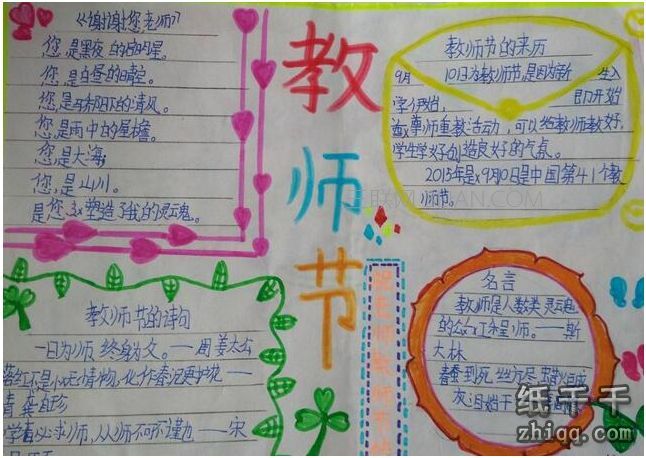 《谢谢您老师》
您是黑夜的启明星。
您是白昼的晴空。
您是骄阳下的清风。
您是雨中的屋檐。
您是大海
您是山川。
是您 塑造了我的灵魂。
教
师
节
教师节的来历
9月10日为教师节,是因为新生入
学伊始, 即开始
尊师重教活动,可以给教师教好,
学生学好创造良好的气点。
2015年是9月10日是中国第41个教
师节。
教师节的诗句
一日为师终身为父。——周姜太公
落红不是无情物,化作春泥更护花——
清 龚自珍
学者必求师,从师不可不谨也——宋
名言
教师是人类灵魂
的 工程师。——斯
大林
春蚕到死丝方尽,蜡炬成
灰泪始干
纸千千
zhiqq.com